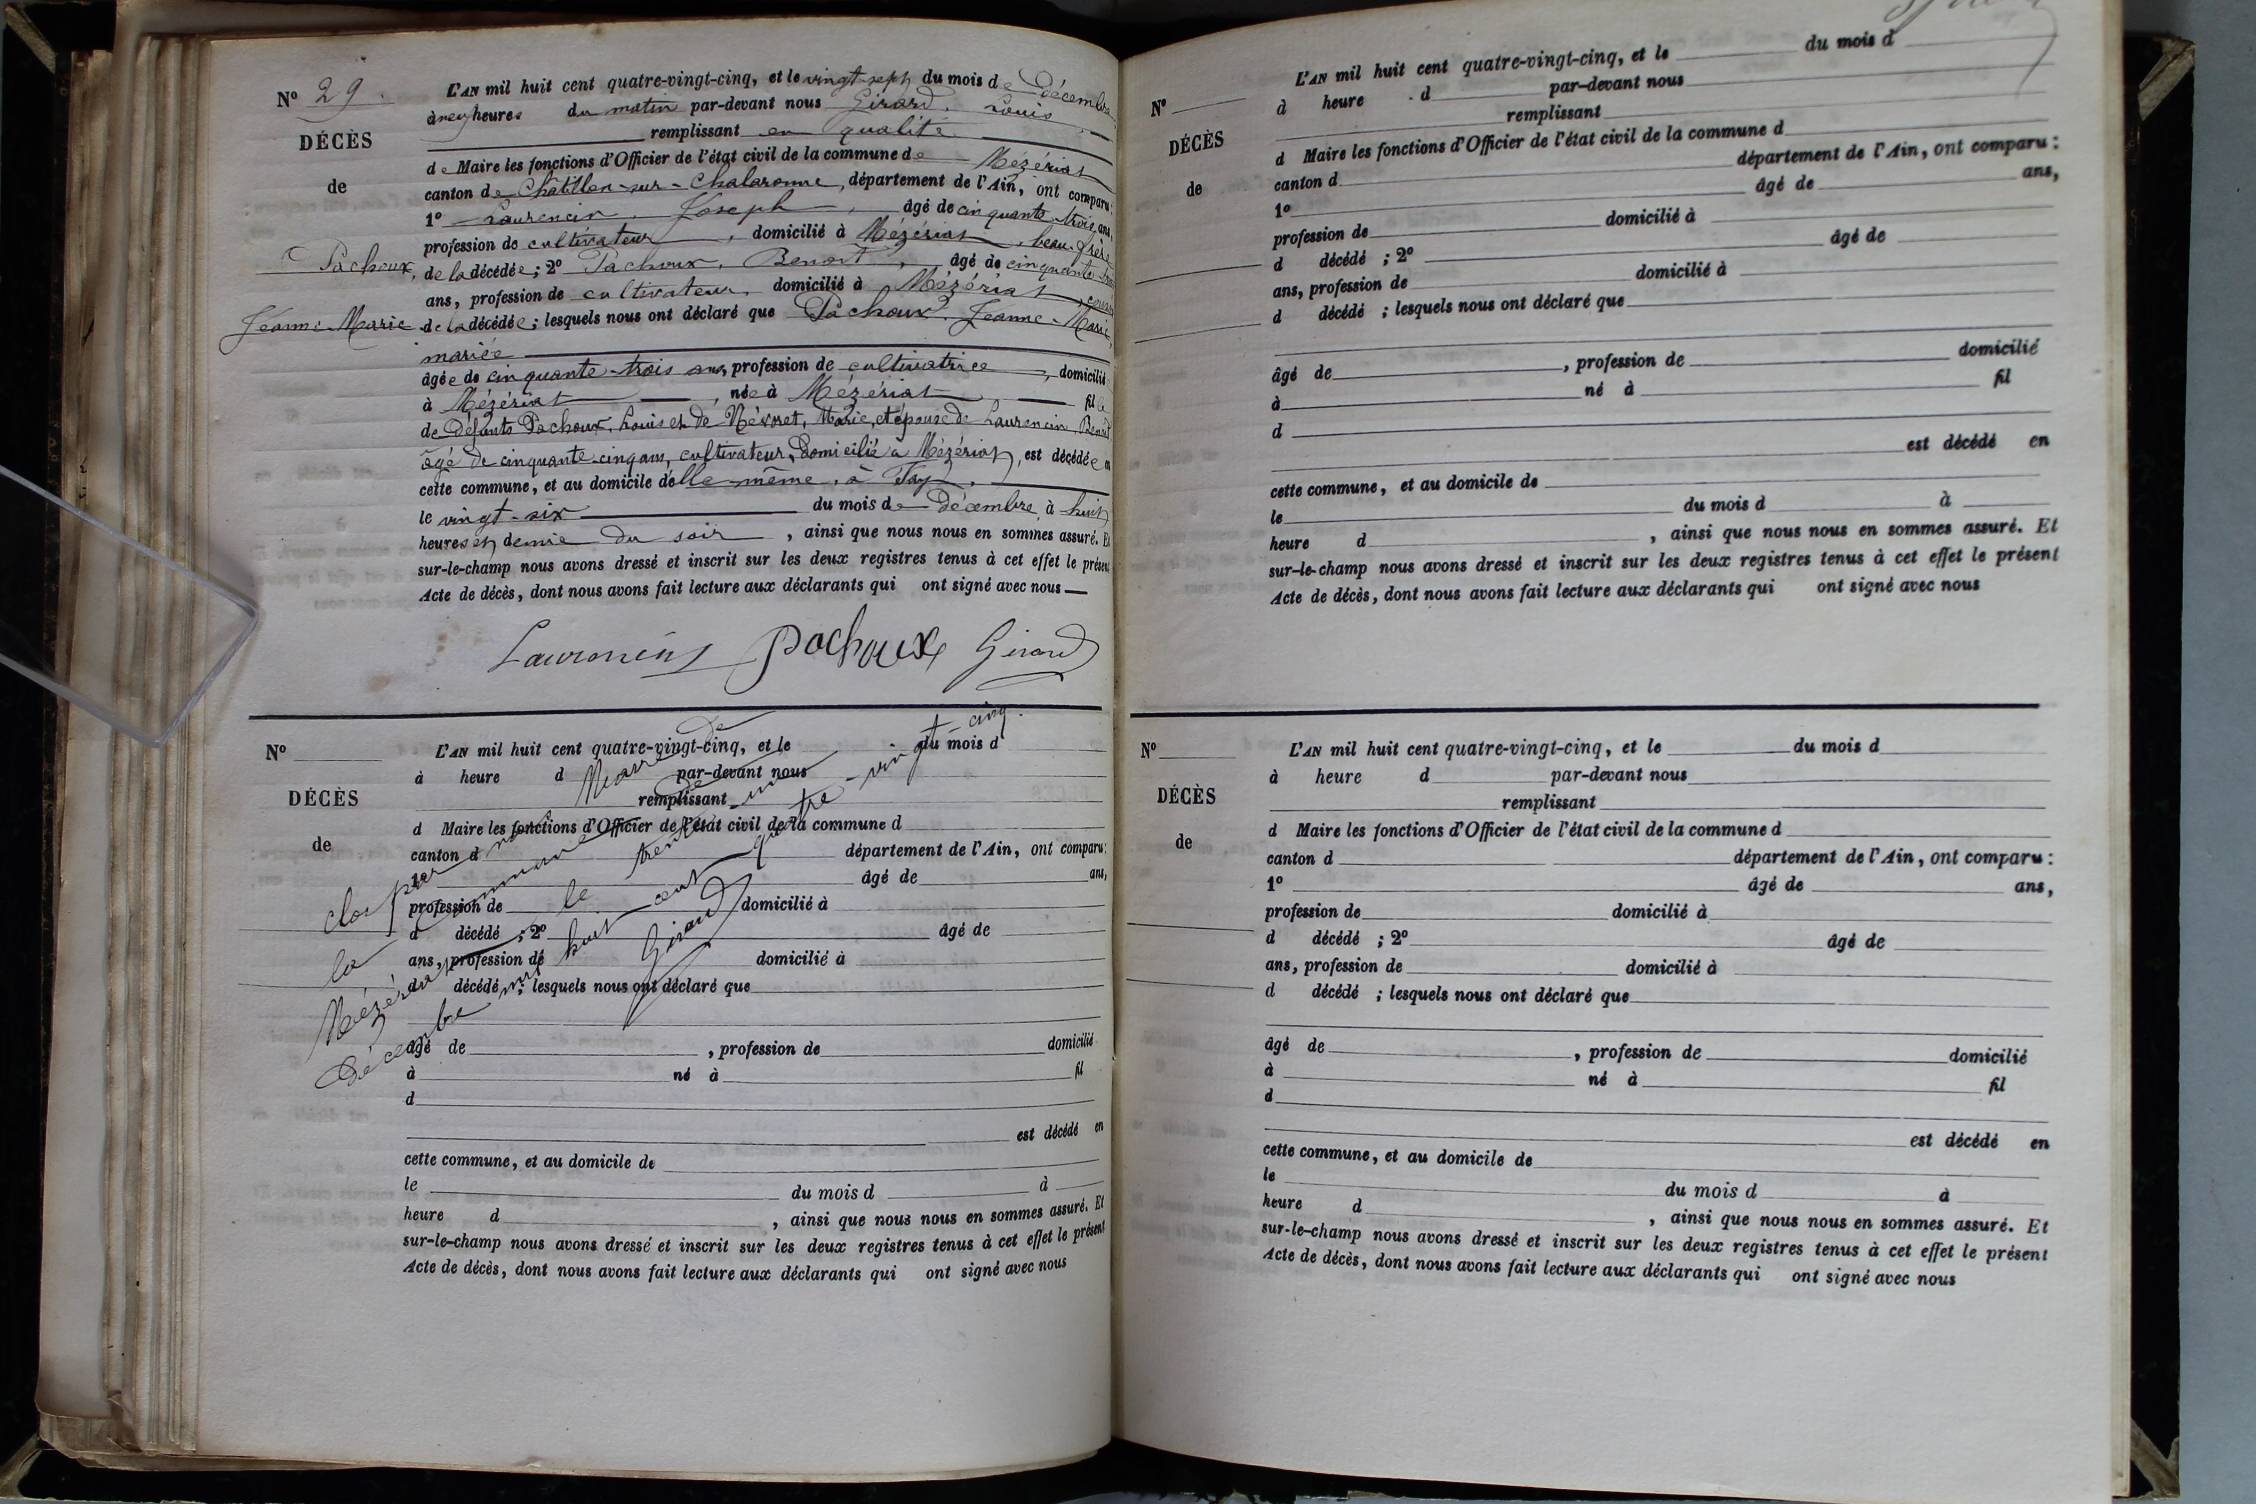 N° 29.
DÉCÈS
de
Pachoux,
Jeanne-Marie
L'AN mil huit cent quatre-vingt-cinq, et le vingt-sept du mois de Décembre
à neuf heures du matin par-devant nous Girard, Louis,
remplissant en qualité
de Maire les fonctions d'Officier de l'état civil de la commune de Mézériat
canton de Châtillon-sur-Chalaronne, département de l'Ain, ont comparu:
1° Laurencin, Joseph, âgé de cinquante-trois ans,
profession de cultivateur, domicilié à Mézériat, beau-frère
de la décédée; 2° Pachoux, Benoît, âgé de cinquante-trois
ans, profession de cultivateur, domicilié à Mézériat, cousin
de la décédée; lesquels nous ont déclaré que Pachoux, Jeanne-Marie,
mariée
âgée de cinquante-trois ans, profession de cultivatrice, domicilié
à Mézériat, née à Mézériat fille
de défunts Pachoux, Louis et de Névoret, Marie, et épouse de Laurencin, Benoît
âgé de cinquante-cinq ans, cultivateur, domicilié à Mézériat, est décédée en
cette commune, et au domicile d'elle-même, à Fay,
le vingt-six du mois de Décembre à huit
heures et demie du soir, ainsi que nous nous en sommes assuré. Et
sur-le-champ nous avons dressé et inscrit sur les deux registres tenus à cet effet le présent
Acte de décès, dont nous avons fait lecture aux déclarants qui ont signé avec nous
Laurencin Pachoux Girard
N°
DÉCÈS
de
L'AN mil huit cent quatre-vingt-cinq, et le du mois d
à heure d par-devant nous
remplissant
d Maire les fonctions d'Officier de l'état civil de la commune d
canton d département de l'Ain, ont comparu:
1° âgé de ans,
profession de domicilié à
d décédé ; 2° âgé de
ans, profession de domicilié à
d décédé ; lesquels nous ont déclaré que
âgé de , profession de domicilié
à né à fil
d
est décédé en
cette commune, et au domicile de
le du mois d à
heure d , ainsi que nous nous en sommes assuré. Et
sur-le-champ nous avons dressé et inscrit sur les deux registres tenus à cet effet le présent
Acte de décès, dont nous avons fait lecture aux déclarants qui ont signé avec nous
clos par nous Maire de
la commune de
Mézériat le trente-un
Décembre mil huit cent quatre-vingt-cinq.
Girard
N°
DÉCÈS
de
L'AN mil huit cent quatre-vingt-cinq, et le du mois d
à heure d par-devant nous
remplissant
d Maire les fonctions d'Officier de l'état civil de la commune d
canton d département de l'Ain, ont comparu:
1° âgé de ans,
profession de domicilié à
d décédé ; 2° âgé de
ans, profession de domicilié à
d décédé ; lesquels nous ont déclaré que
âgé de , profession de domicilié
à né à fil
d
est décédé en
cette commune, et au domicile de
le du mois d à
heure d , ainsi que nous nous en sommes assuré. Et
sur-le-champ nous avons dressé et inscrit sur les deux registres tenus à cet effet le présent
Acte de décès, dont nous avons fait lecture aux déclarants qui ont signé avec nous
N°
DÉCÈS
de
L'AN mil huit cent quatre-vingt-cinq, et le du mois d
à heure d par-devant nous
remplissant
d Maire les fonctions d'Officier de l'état civil de la commune d
canton d département de l'Ain, ont comparu :
1° âgé de ans,
profession de domicilié à
d décédé ; 2° âgé de
ans, profession de domicilié à
d décédé ; lesquels nous ont déclaré que
âgé de , profession de domicilié
à né à fil
d
est décédé en
cette commune, et au domicile de
le du mois d à
heure d , ainsi que nous nous en sommes assuré. Et
sur-le-champ nous avons dressé et inscrit sur les deux registres tenus à cet effet le présent
Acte de décès, dont nous avons fait lecture aux déclarants qui ont signé avec nous